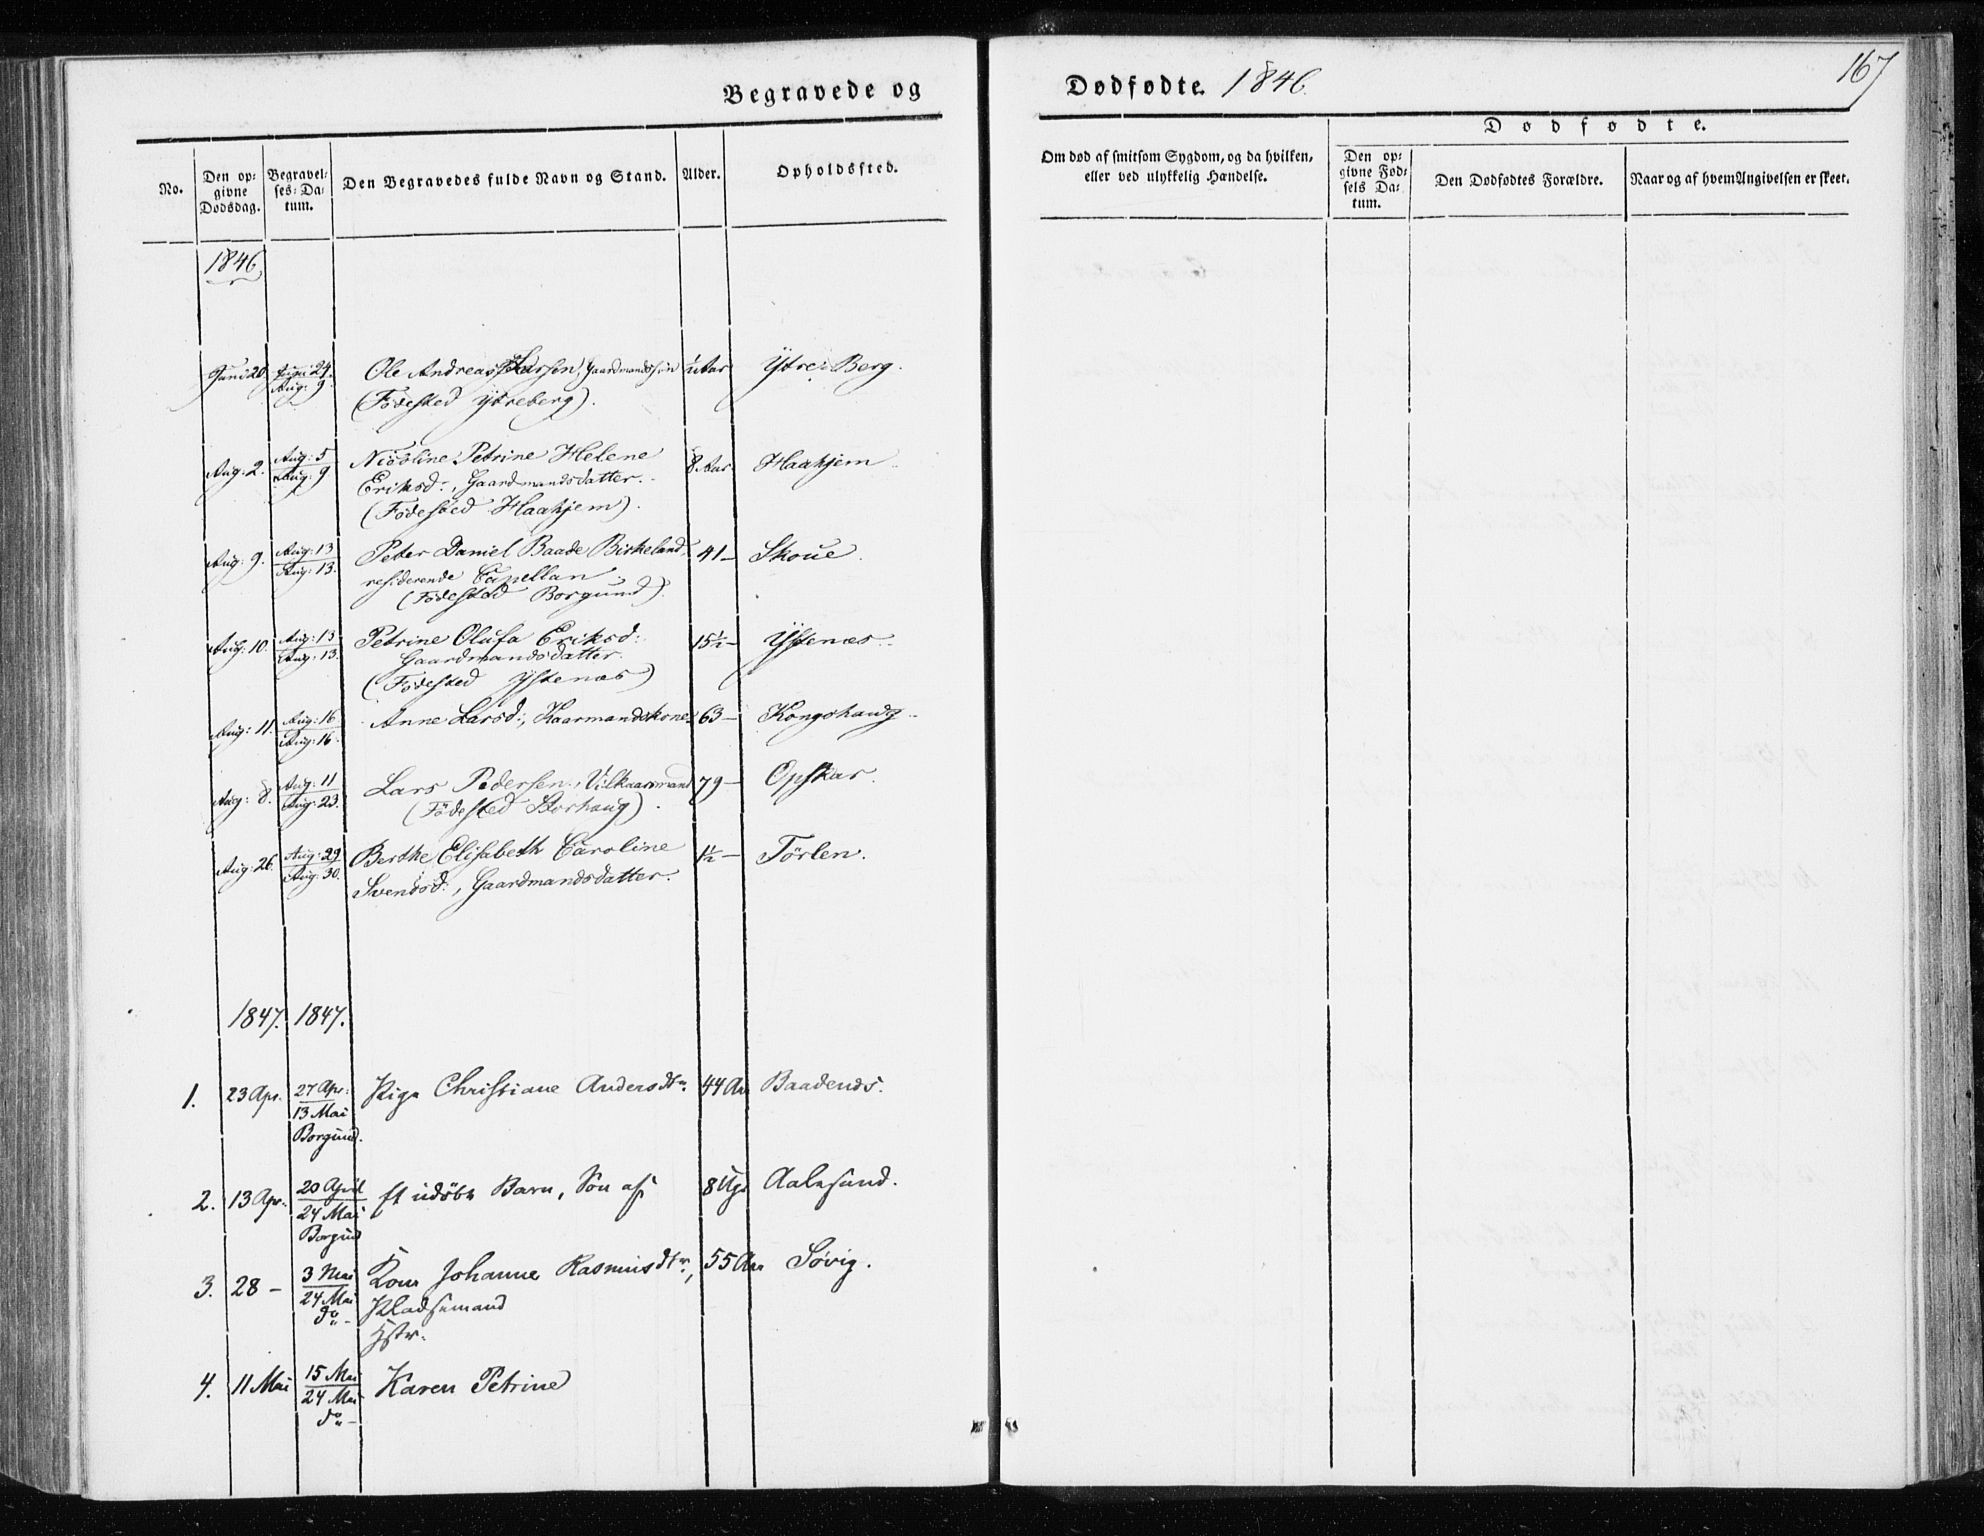 Begravede og Dødfødte. 1846.
167
No.
Den opgivne Dødsdag.
Begravelses-Datum.
Den Begravedes fulde Navn og Stand.
Alder.
Opholdssted.
Om død af smitsom Sygdom, og da hvilken,
eller ved ulykkelig Hændelse.
Dødfødte.
Den opgivne Fødsels Datum.
Den Dødfødtes Forældre.
Naar og af hvem Angivelsen er skeet.
1846
Juni 20 Juni 24. Aug: 9 Ole Andreas Larsen, Gaardmandssøn Aar Ytre Berg.
(Födested Ytreberg).
Aug: 2. Aug: 5 Aug: 9 Nicoline Petrine Helene 8 Aar Haahjem
Eriksd:, Gaardmandsdatter.
(Födested Haahjem).
Aug: 9. Aug: 13 Aug: 13. Peter Daniel Baade Birkeland 41 – Skoue.
residerende Capellan
(Födested Borgund)
Aug: 10. Aug: 13 Aug: 13. Petrine Olufa Eriksd: 15½ – Ystenæs.
Gaardmandsdatter.
(Födested Ystenæs)
Aug: 11. Aug: 16 Aug: 16. Anne Larsd:, Kaarmandskone 63 – Kongshaug
Aug: 8. Aug: 11 Aug: 23. Lars Pedersen, Vilkaarsmand 79 – Opskar.
(Födested Storhaug).
Aug: 26. Aug: 29 Aug: 30. Berthe Elisabeth Caroline 1½ – Törlen.
Svendsd:, Gaardmandsdatter.
1847. 1847.
1. 23 Apr. 27 Apr: 13 Mai Pige Christiane Andersdtr. 44 Aar Baadends.
Borgund.
2. 13 Apr. 20 April 24 Mai Et udøbt Barn, Søn af 8 Ug. Aalesund.
Borgund
3. 28 – 3 Mai 24 Mai Kone Johanne Rasmusdtr, 55 Aar Søvig.
do – Pladsemand
Hstr.
4. 11 Mai 15 Mai 24 Mai Karen Petrine
do –